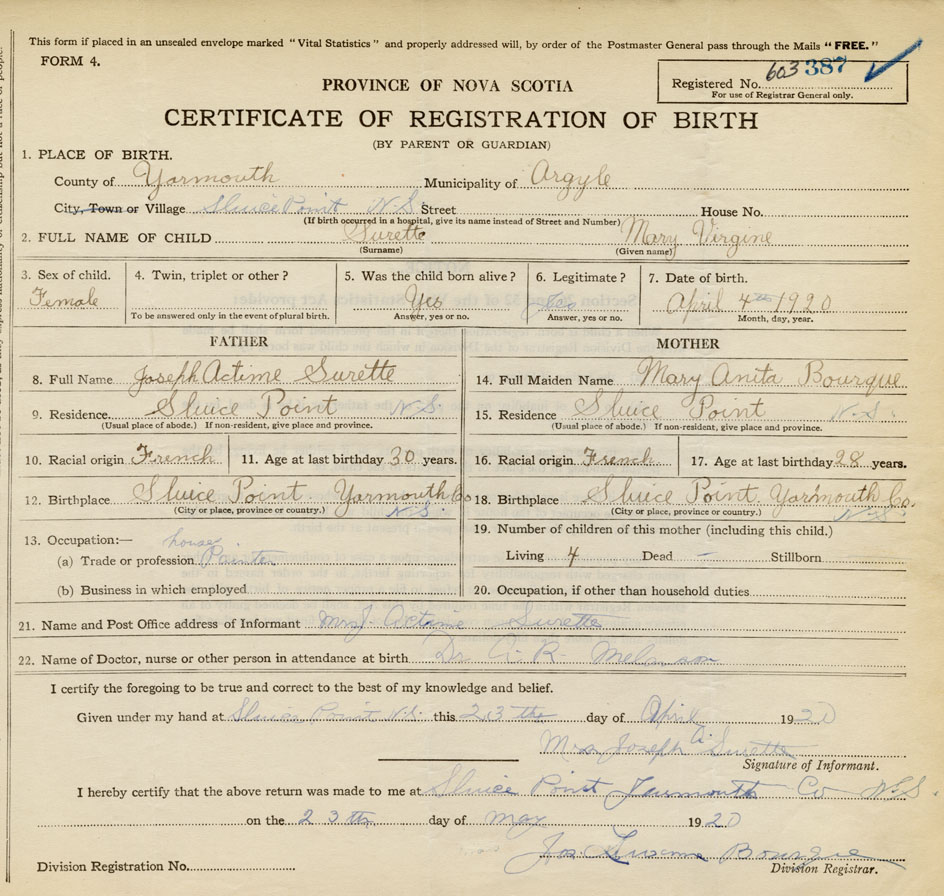 This form if placed in an unsealed envelope marked "Vital Statistics" and properly addressed will, by order of the Postmaster General pass through the Mails "FREE."
FORM 4.
Registered No. 603 387
For use of Registrar General only.
PROVINCE OF NOVA SCOTIA
CERTIFICATE OF REGISTRATION OF BIRTH
(BY PARENT OR GUARDIAN)
1. PLACE OF BIRTH.
County of Yarmouth Municipality of Argyle
City, Town or Village Sluice Point N.S. Street House No.
(If birth occurred in a hospital, give its name instead of Street and Number)
2. FULL NAME OF CHILD Surette Mary Virgine
(Surname) (Given name)
3. Sex of child. 4. Twin, triplet or other? 5. Was the child born alive? 6. Legitimate? 7. Date of birth.
Female Yes Yes April 4th 1920
To be answered only in the event of plural birth. Answer, yes or no. Answer, yes or no. Month, day, year.
FATHER MOTHER
8. Full Name Joseph Actime Surette 14. Full Maiden Name Mary Anita Bourque
9. Residence. Sluice Point N.S. 15. Residence Sluice Point N.S.
(Usual place of abode.) If non-resident, give place and province. (Usual place of abode.) If non-resident, give place and province.
10. Racial origin French 11. Age at last birthday 30 years. 16. Racial origin French 17. Age at last birthday 28 years.
12. Birthplace Sluice Point Yarmouth Co N.S. 18. Birthplace Sluice Point Yarmouth Co. N.S.
(City or place, province or country.) (City or place, province or country.)
13. Occupation:— house 19. Number of children of this mother (including this child.)
(a) Trade or profession Painter Living 4 Dead – Stillborn
(b) Business in which employed 20. Occupation, if other than household duties
21. Name and Post Office address of Informant Mrs J. Actime Surette
22. Name of Doctor, nurse or other person in attendance at birth Dr A. R. Melanson
I certify the foregoing to be true and correct to the best of my knowledge and belief.
Given under my hand at Sluice Point N.S. this 23th day of April 1920
Mrs Joseph A. Surette
Signature of Informant.
I hereby certify that the above return was made to me at Sluice Point Yarmouth Co N.S.
on the 23th day of May 1920
Jos Bourque
Division Registration No. Division Registrar.